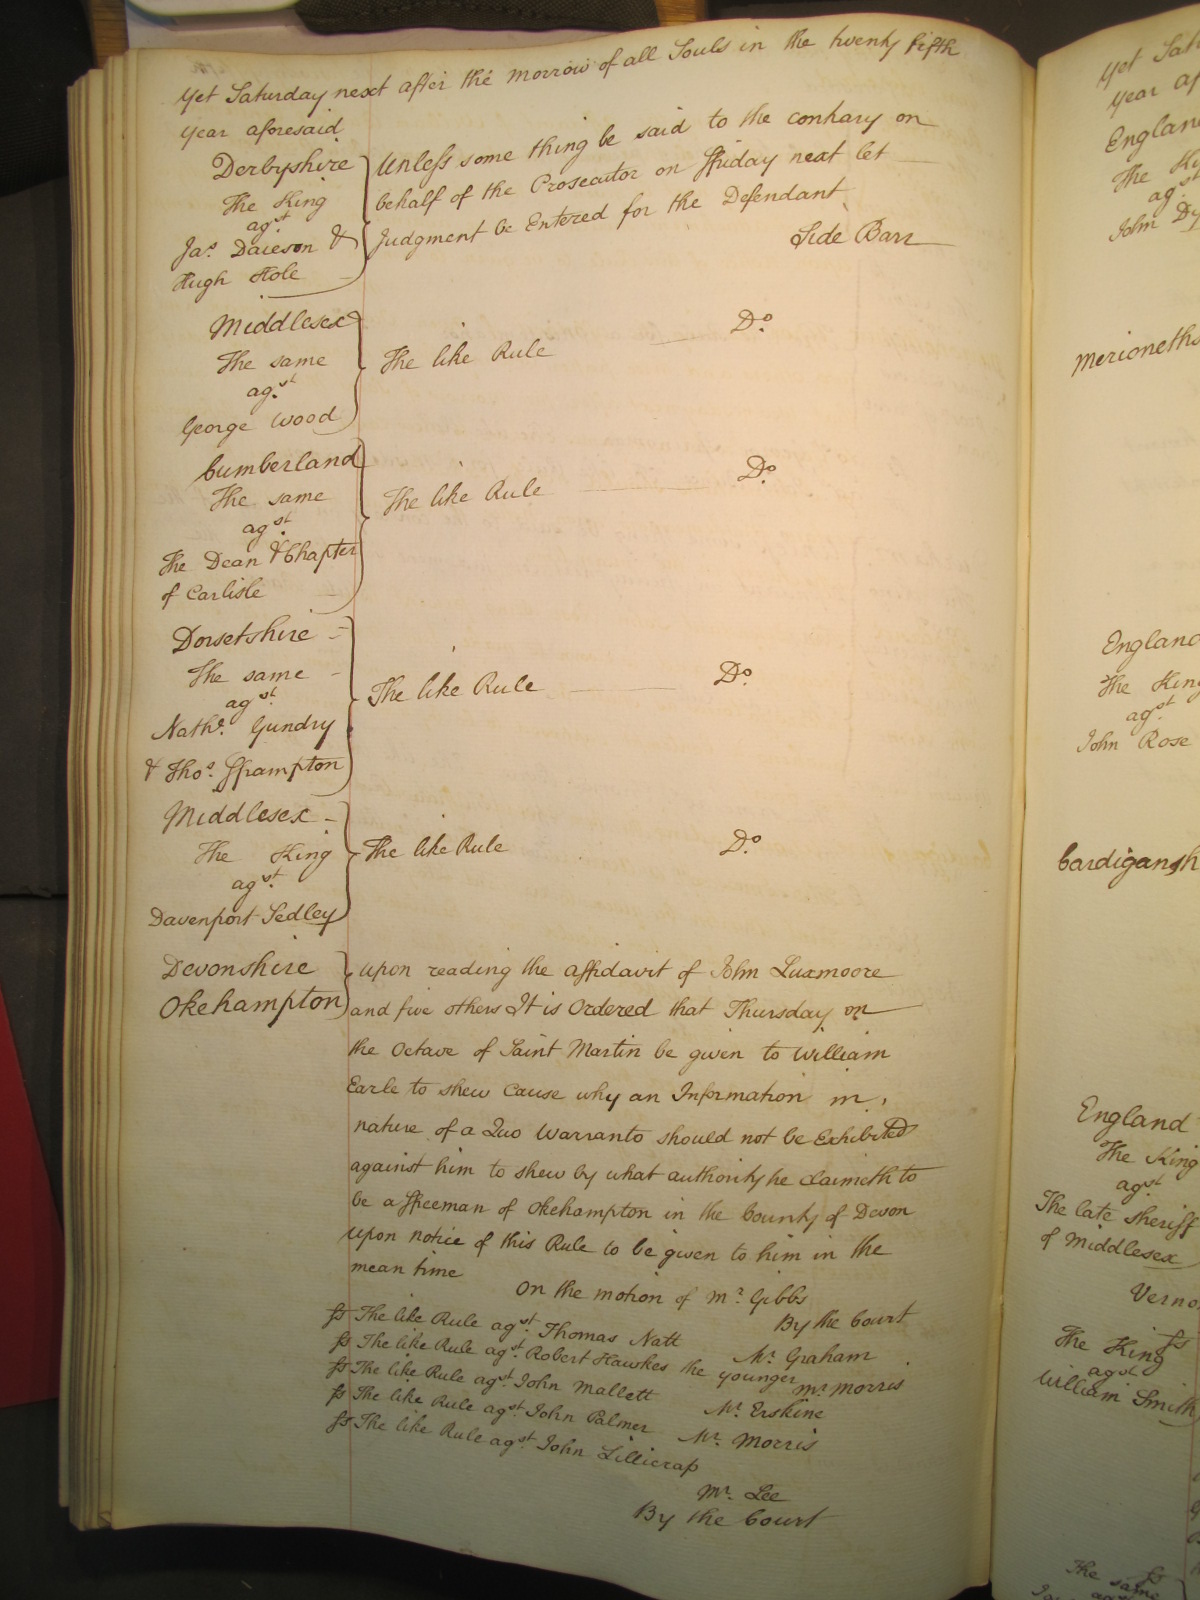 Yet Saturday next after the morrow of all Souls in the twenty fifth
year aforesaid
Derbyshire
The King
agst.
Jas. Daieson &
Hugh Hole
Unless some thing be said to the contrary on
behalf of the Prosecutor on ffriday next let
Judgment be Entered for the Defendant
Side Barr
Middlesex
The same
agst.
George Wood
The like Rule Do.
Cumberland
The same
agst.
The Dean & Chapter
of Carlisle
The like Rule Do.
Dorsetshire
The same
agst.
Nathl. Gundry
& Thos. fframpton
The like Rule Do.
Middlesex
The King
agst.
Davenport Sedley
The like Rule Do.
Devonshire
Okehampton
Upon reading the affidavit of John Luxmoore
and five others It is Ordered that Thursday on
the Octave of Saint Martin be given to William
Earle to shew Cause why an Information in
nature of a Quo Warranto should not be Exhibited
against him to shew by what authority he claimeth to
be a ffreeman of Okehampton in the County of Devon
upon notice of this Rule to be given to him in the
mean time
On the motion of Mr. Gibbs
By the Court
fs The like Rule agst. Thomas Natt Mr. Graham
fs The like Rule agst. Robert Hawkes the younger Mr. Morris
fs The like Rule agst. John Mallett Mr. Erskine
fs The like Rule agst. John Palmer Mr. Morris
fs The like Rule agst. John Lillicrap
Mr. Lee
By the Court
Yet Sat
Year af
England
The Ki
agst.
John Dy
Merioneths
England
The King
agst.
John Rose
Cardigansh
England
The King
agst.
The late Sheriff
of Middlesex
Verno
fs
The King
agst.
William Smith
fs
The same